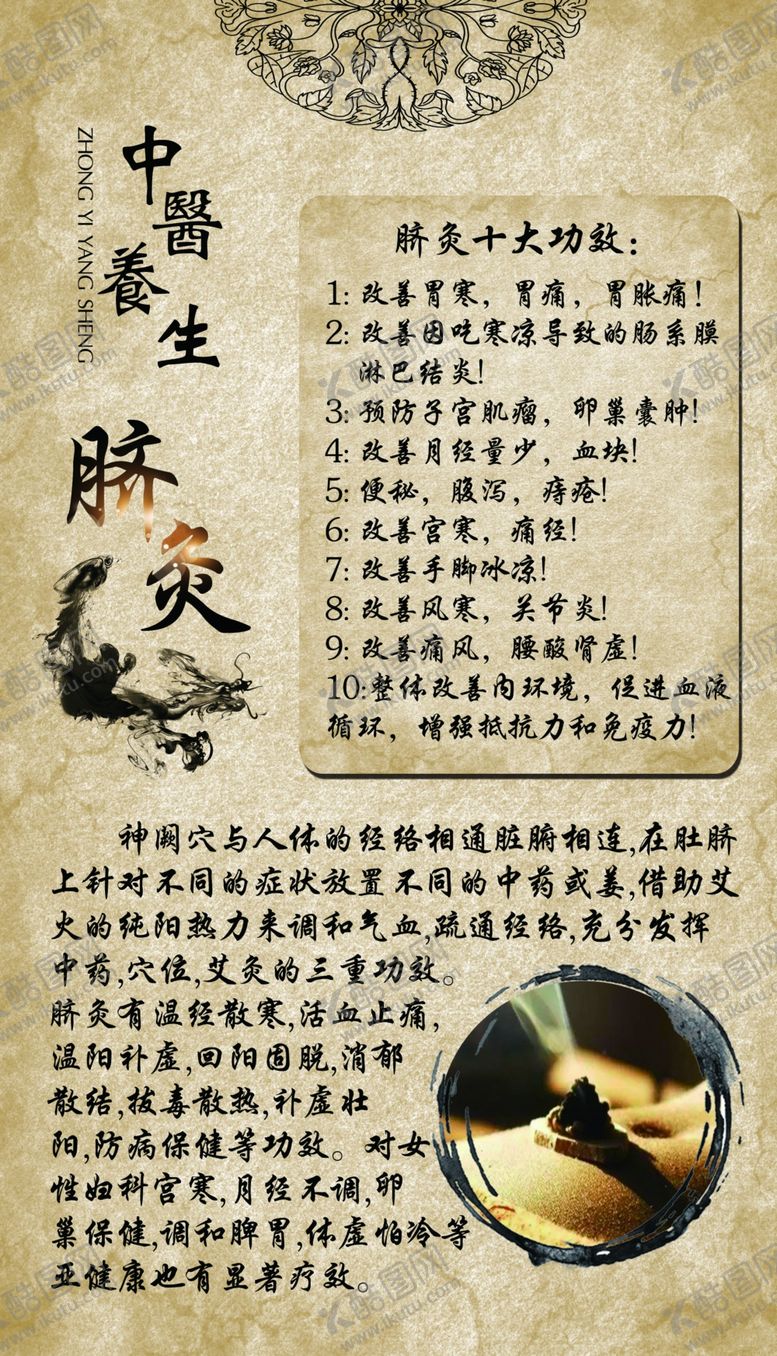 中醫養生
ZHONG YI YANG SHENG
脐灸
脐灸十大功效：
1: 改善胃寒，胃痛，胃胀痛！
2: 改善因吃寒凉导致的肠系膜
淋巴结炎！
3: 预防子宫肌瘤，卵巢囊肿！
4: 改善月经量少，血块！
5: 便秘，腹泻，痔疮！
6: 改善宫寒，痛经！
7: 改善手脚冰凉！
8: 改善风寒，关节炎！
9: 改善痛风，腰酸肾虚！
10:整体改善内环境，促进血液
循环，增强抵抗力和免疫力！
神阙穴与人体的经络相通脏腑相连,在肚脐
上针对不同的症状放置不同的中药或姜,借助艾
火的纯阳热力来调和气血,疏通经络,充分发挥
中药,穴位,艾灸的三重功效。
脐灸有温经散寒,活血止痛,
温阳补虚,回阳固脱,消郁
散结,拔毒散热,补虚壮
阳,防病保健等功效。对女
性妇科宫寒,月经不调,卵
巢保健,调和脾胃,体虚怕冷等
亚健康也有显著疗效。
酷图网
www.ikutu.com